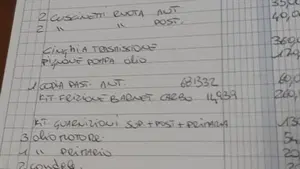 2 CUSCINETTI RUOTA ANT. 35,0
2 " " POST. 40,0
CINGHIA TRASMISSIONE 360,0
PIGNONE POMPA OLIO 1
1 COPPIA PAST. ANT 681332 60,0
KIT FRIZIONE BARNET CARBO 260,
KIT GUARNIZIONI SUP + POST + PRIMARIA 13
3 OLIO MOTORE 54
1 " PRIMARIO 20
2 candele